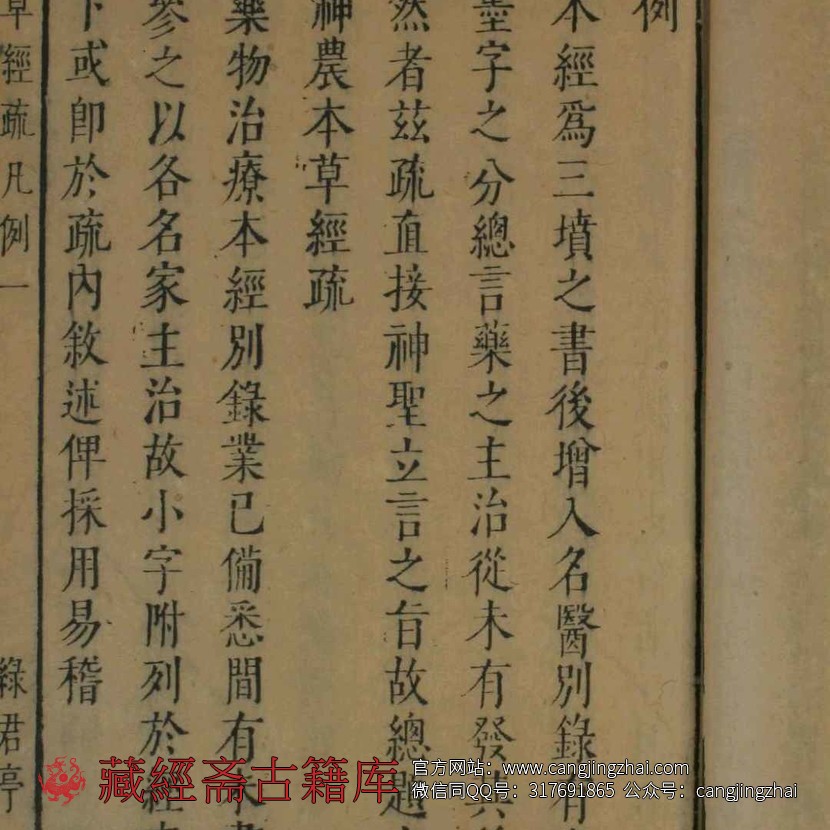 例
本經爲三墳之書後增入名醫別錄有
墨字之分總言藥之主治從未有發其
然者茲疏直接神聖立言之旨故總題
神農本草經疏
藥物治療本經別錄業已備悉間有
參之以各名家主治故小字附列於經
下或卽於疏內敘述俾採用易稽
草經疏凡例一
綠君亭
藏經斋古籍库
官方网站：www.cangjingzhai.com
微信同QQ号：317691865 公众号：cangjingzhai